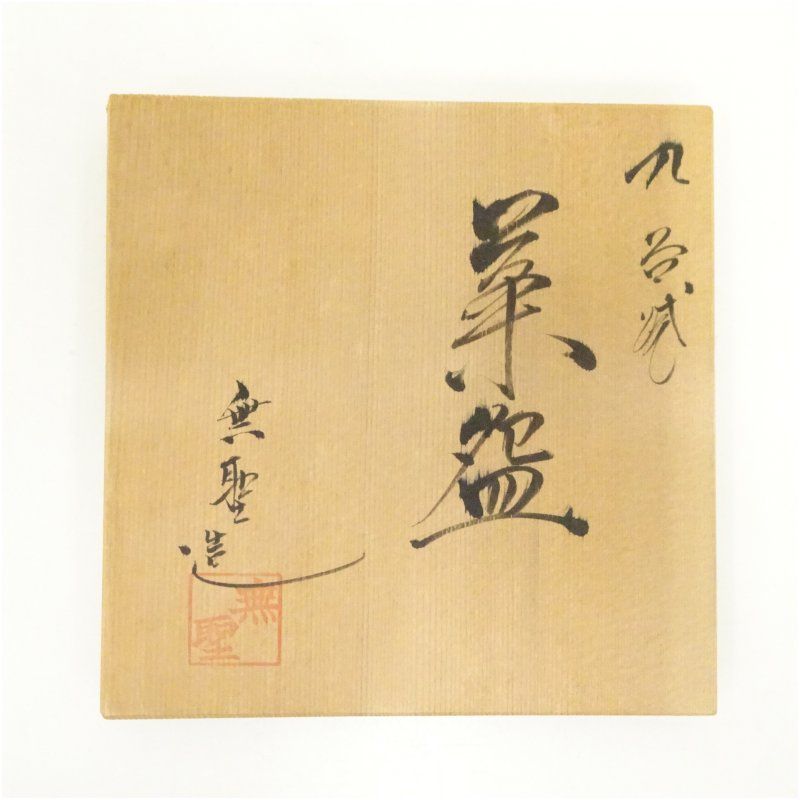 九谷焼
菓盌
無聖造
無聖